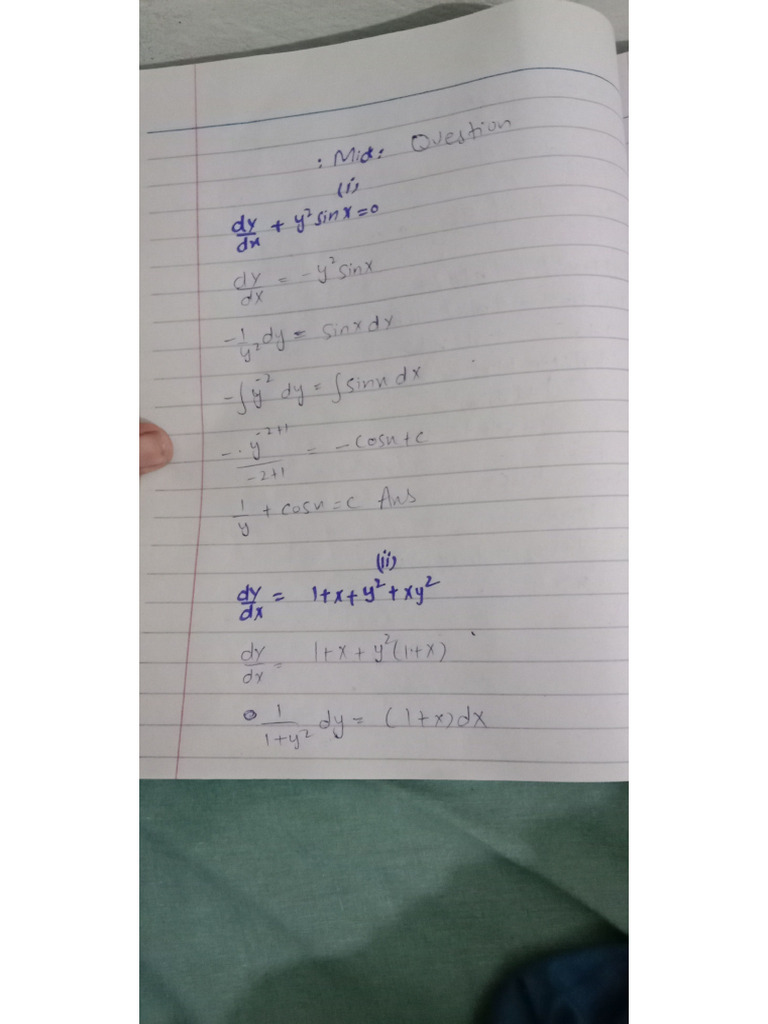 : Mid: Question
(i)
dy/dx + y² sinx = 0
dy/dx = -y² sinx
-1/y² dy = sinx dx
-∫ y⁻² dy = ∫ sinx dx
-. y⁻²⁺¹/-2+1 = -cosx + c
1/y + cosx = c Ans
(ii)
dy/dx = 1+x+y²+xy²
dy/dx = 1+x + y²(1+x)
1/1+y² dy = (1+x)dx